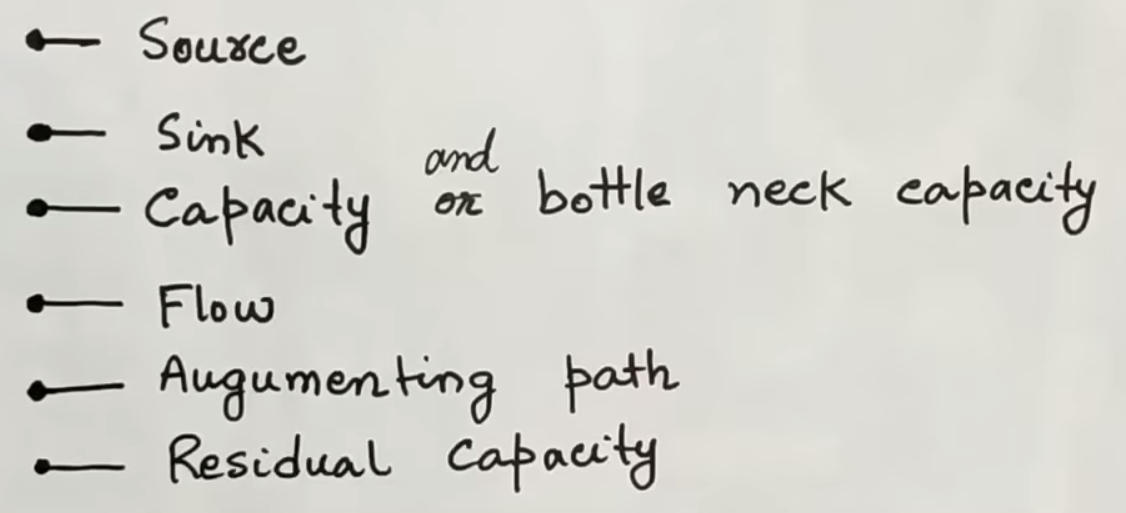 Source
Sink
Capacity and or bottle neck capacity
Flow
Augumenting path
Residual Capacity